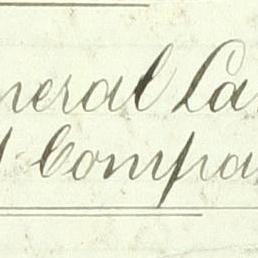 neral La
d Compa